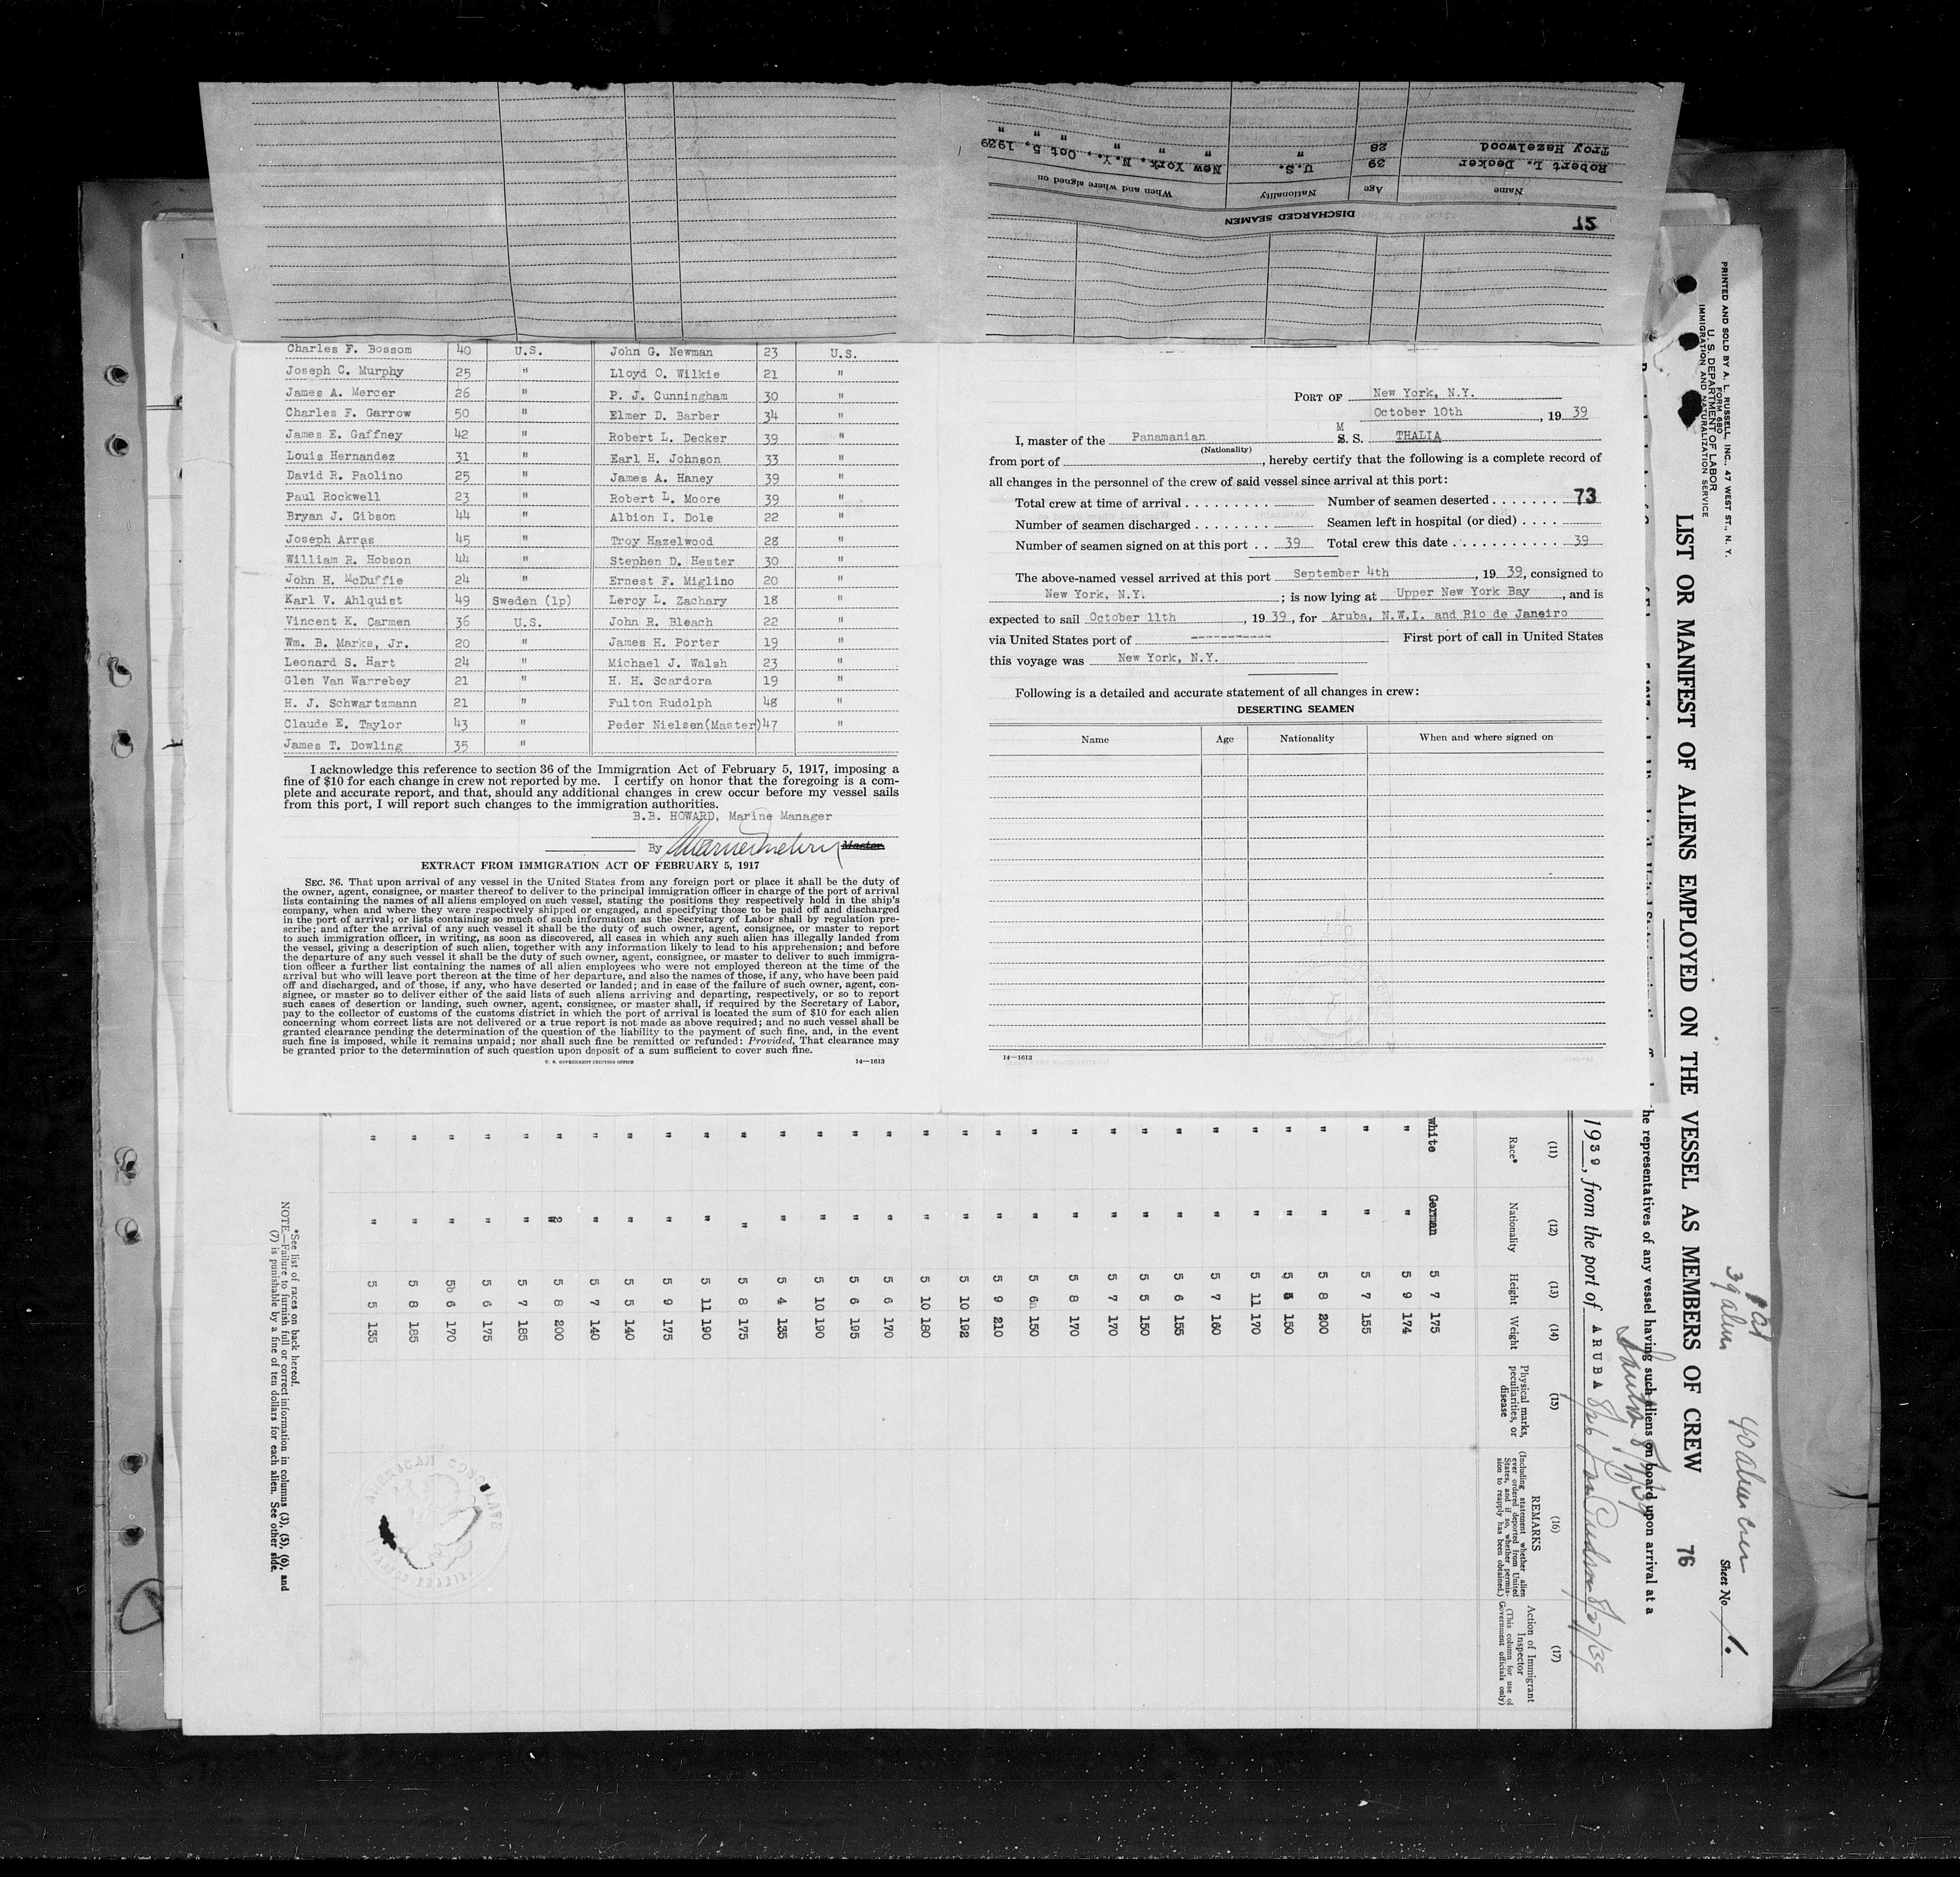 Name Age Nationality When and where signed on
Robert L. Decker 39 U.S. New York, N.Y., Oct 5, 1939
Troy Hazelwood 28 " " " " "
DISCHARGED SEAMEN
72
Charles F. Bossom 40 U.S. John G. Newman 23 U.S.
Joseph C. Murphy 25 " Lloyd O. Wilkie 21 "
James A. Mercer 26 " P. J. Cunningham 30 "
Charles F. Garrow 50 " Elmer D. Barber 34 "
James E. Gaffney 42 " Robert L. Decker 39 "
Louis Hernandez 31 " Earl H. Johnson 33 "
David R. Paolino 25 " James A. Haney 39 "
Paul Rockwell 23 " Robert L. Moore 39 "
Bryan J. Gibson 44 " Albion I. Dole 22 "
Joseph Arras 45 " Troy Hazelwood 28 "
William R. Hobson 44 " Stephen D. Hester 30 "
John H. McDuffie 24 " Ernest F. Miglino 20 "
Karl V. Ahlquist 49 Sweden (1p) Leroy L. Zachary 18 "
Vincent K. Carmen 36 U.S. John R. Bleach 22 "
Wm. B. Marks, Jr. 20 " James H. Porter 19 "
Leonard S. Hart 24 " Michael J. Walsh 23 "
Glen Van Warrebey 21 " H. H. Scardora 19 "
H. J. Schwartzmann 21 " Fulton Rudolph 48 "
Claude E. Taylor 43 " Peder Nielsen(Master)47 "
James T. Dowling 35 "
I acknowledge this reference to section 36 of the Immigration Act of February 5, 1917, imposing a
fine of $10 for each change in crew not reported by me. I certify on honor that the foregoing is a com-
plete and accurate report, and that, should any additional changes in crew occur before my vessel sails
from this port, I will report such changes to the immigration authorities.
B.B. HOWARD, Marine Manager
By Master.
EXTRACT FROM IMMIGRATION ACT OF FEBRUARY 5, 1917
SEC. 36. That upon arrival of any vessel in the United States from any foreign port or place it shall be the duty of
the owner, agent, consignee, or master thereof to deliver to the principal immigration officer in charge of the port of arrival
lists containing the names of all aliens employed on such vessel, stating the positions they respectively hold in the ship's
company, when and where they were respectively shipped or engaged, and specifying those to be paid off and discharged
in the port of arrival; or lists containing so much of such information as the Secretary of Labor shall by regulation pre-
scribe; and after the arrival of any such vessel it shall be the duty of such owner, agent, consignee, or master to report
to such immigration officer, in writing, as soon as discovered, all cases in which any such alien has illegally landed from
the vessel, giving a description of such alien, together with any information likely to lead to his apprehension; and before
the departure of any such vessel it shall be the duty of such owner, agent, consignee, or master to deliver to such immigra-
tion officer a further list containing the names of all alien employees who were not employed thereon at the time of the
arrival but who will leave port thereon at the time of her departure, and also the names of those, if any, who have been paid
off and discharged, and of those, if any, who have deserted or landed; and in case of the failure of such owner, agent, con-
signee, or master so to deliver either of the said lists of such aliens arriving and departing, respectively, or so to report
such cases of desertion or landing, such owner, agent, consignee, or master shall, if required by the Secretary of Labor,
pay to the collector of customs of the customs district in which the port of arrival is located the sum of $10 for each alien
concerning whom correct lists are not delivered or a true report is not made as above required; and no such vessel shall be
granted clearance pending the determination of the question of the liability to the payment of such fine, and, in the event
such fine is imposed, while it remains unpaid; nor shall such fine be remitted or refunded: Provided, That clearance may
be granted prior to the determination of such question upon deposit of a sum sufficient to cover such fine.
U. S. GOVERNMENT PRINTING OFFICE 14—1613
PORT OF New York, N.Y.
October 10th, 19 39
I, master of the Panamanian M S. S. THALIA
(Nationality)
from port of , hereby certify that the following is a complete record of
all changes in the personnel of the crew of said vessel since arrival at this port:
Total crew at time of arrival Number of seamen deserted 73
Number of seamen discharged Seamen left in hospital (or died)
Number of seamen signed on at this port 39 Total crew this date 39
The above-named vessel arrived at this port September 4th, 19 39, consigned to
New York, N.Y. ; is now lying at Upper New York Bay, and is
expected to sail October 11th, 19 39, for Aruba, N.W.I. and Rio de Janeiro
via United States port of ----------- First port of call in United States
this voyage was New York, N.Y.
Following is a detailed and accurate statement of all changes in crew:
DESERTING SEAMEN
Name Age Nationality When and where signed on
14—1613
PRINTED AND SOLD BY A. L. RUSSELL, INC., 47 WEST ST., N. Y.
FORM 680
U. S. DEPARTMENT OF LABOR
IMMIGRATION AND NATURALIZATION SERVICE
39 alien 40 alien crew
Sheet No. 1.
LIST OR MANIFEST OF ALIENS EMPLOYED ON THE VESSEL AS MEMBERS OF CREW 76
he representatives of any vessel having such aliens on board upon arrival at a
1939, from the port of ARUBA 8/27/39
(11) (12) (13) (14) (15) (16) (17)
Race* Nationality Height Weight Physical marks, peculiarities, or disease
REMARKS
(Including statement whether alien ever ordered deported from United States, and if so, whether permission to reapply has been obtained.)
Action of Immigrant Inspector
(This column for use of Government officials only)
white German 5 7 175
" " 5 9 174
" " 5 7 155
" " 5 8 200
" " 5 150
" " 5 11 170
" " 5 7 160
" " 5 6 155
" " 5 5 150
" " 5 7 170
" " 5 8 170
" " 5 6 150
" " 5 9 210
" " 5 10 192
" " 5 10 180
" " 5 6 170
" " 5 6 195
" " 5 10 190
" " 5 4 135
" " 5 8 175
" " 5 11 190
" " 5 9 175
" " 5 5 140
" " 5 7 140
" " 5 8 200
" " 5 7 185
" " 5 6 175
" " 5 6 170
" " 5 8 185
" " 5 5 135
AMERICAN CONSULATE
*See list of races on back hereof.
NOTE.—Failure to furnish full or correct information in columns (3), (5), (6), and
(7) is punishable by a fine of ten dollars for each alien. See other side.